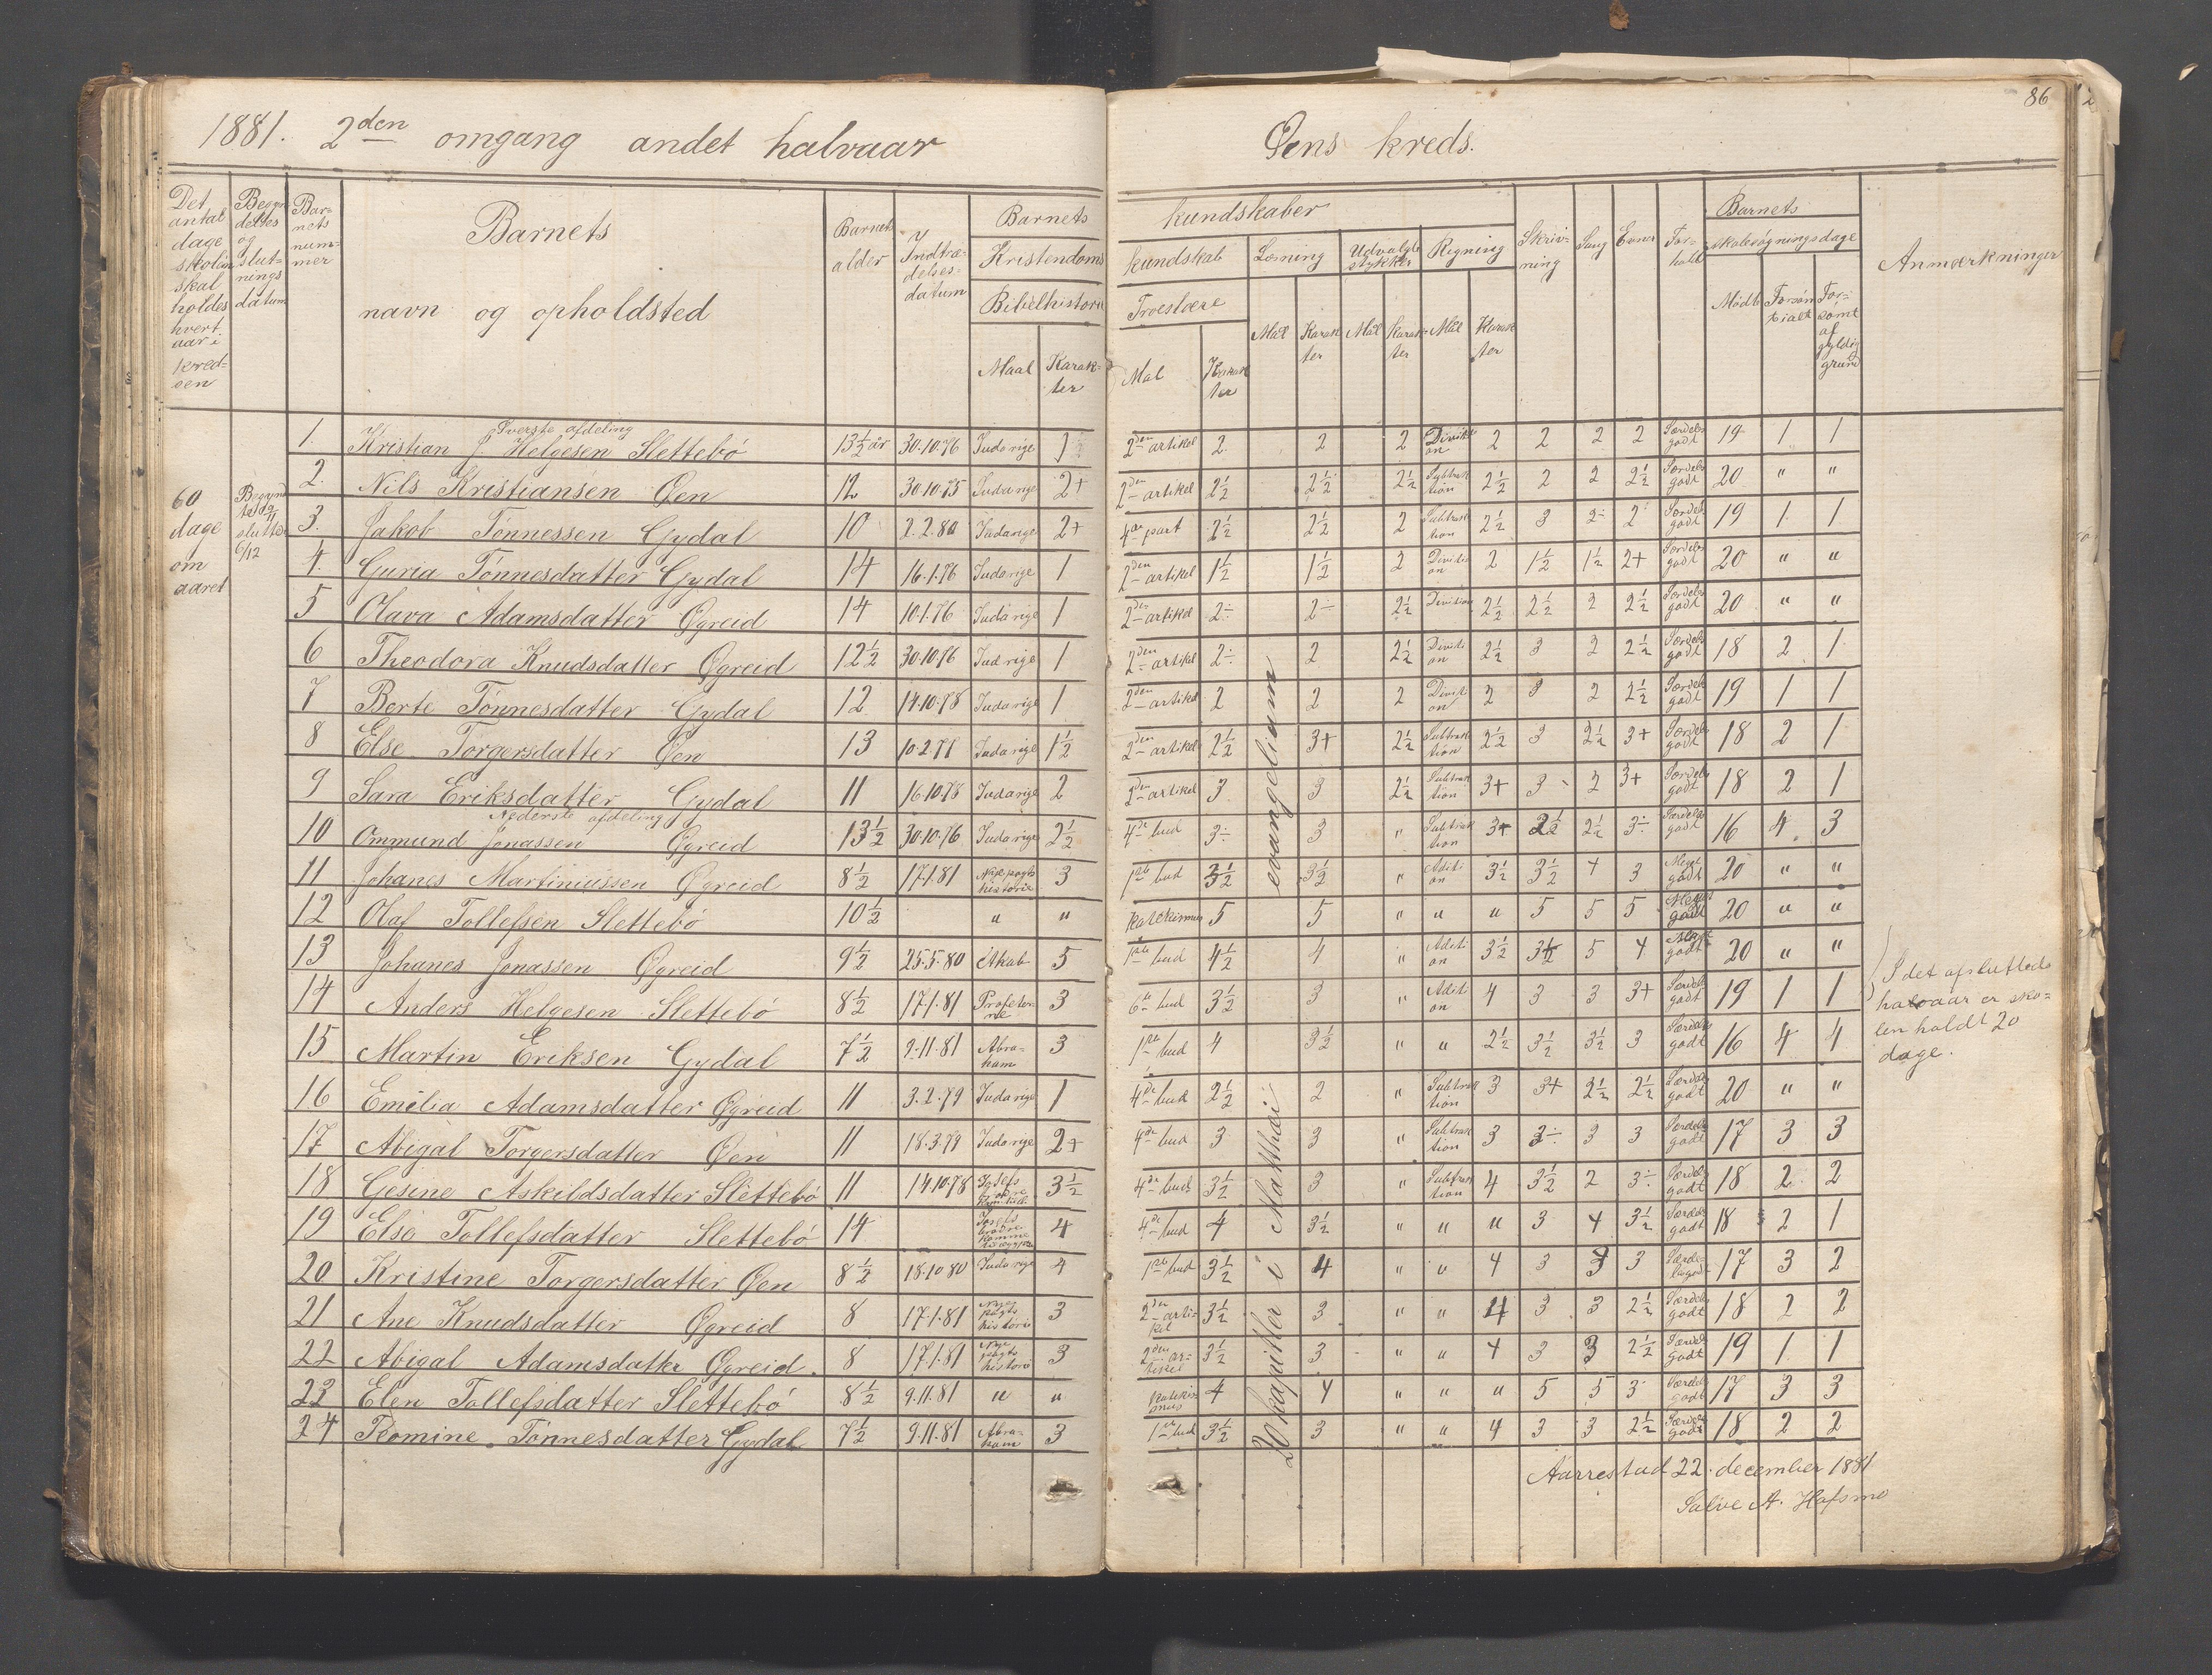 86
1881. 2den omgang andet halvaar Øens kreds.
Det antal dage skolen skal holdes hvert aar i kredsen
Begyndelses og slutnings datum
Barnets nummer
Barnets navn og opholdsted
Barnets alder
Indtrædelsesdatum
Barnets kundskaber
Kristendomskundskab
Bibelhistorie Maal Karakter
Troeslære Mal Karakter
Læsning Mål Karakter
Udvalgte stykker Mål Karakter
Regning Mål Karakter
Skrivning
Sang
Evner
Forhold
Barnets skolesøgningsdage
Mødte Forsømt ialt Forsømt af gyldig grund
Anmærkninger
60 dage om aaret
sluttede 6/12
Øverste afdeling
1. Kristian J. Helgesen Slettebø 13½ år 30.10.76 Judarige 1 2den artikel 2 2 2 Division 2 2 2 2 Særdeles godt 19 1 1
2. Nils Kristiansen Øen 12 30.10.75 Judarige 2+ 2den artikel 2½ 2½ 2½ Subtraktion 2½ 2 2 2½ Særdeles godt 20 " "
3. Jakob Tønnessen Gydal 10 2.2.80 Judarige 2+ 4de part 2½ 2½ 2 Subtraktion 2½ 3 2 2 Særdeles godt 19 1 1
4. Guria Tønnesdatter Gydal 14 16.1.76 Judarige 1 2den artikel 1½ 1½ 2 Division 2 1½ 1½ 2+ Særdeles godt 20 " "
5 Olava Adamsdatter Øgreid 14 10.1.76 Judarige 1 2den artikel 2÷ 2÷ 2½ Division 2½ 2½ 2 2½ Særdeles godt 20 " "
6 Theodora Knudsdatter Øgreid 12½ 30.10.76 Judarige 1 2den artikel 2÷ 2 2½ Division 2½ 3 2 2½ Særdeles godt 18 2 1
7 Berte Tønnesdatter Gydal 12 14.10.78 Judarige 1 2den artikel 2 2 2 Division 2 3 2 2½ Særdeles godt 19 1 1
8 Else Torgersdatter Øen 13 10.2.77 Judarige 1½ 2den artikel 2½ 3+ 2½ Subtraktion 2½ 3 2½ 3+ Særdeles godt 18 2 1
9 Sara Eriksdatter Gydal 11 16.10.78 Judarige 2 2den artikel 3 3 2½ Subtraktion 3+ 3 2 3+ Særdeles godt 18 2 1
Nederste afdeling
10 Ommund Jonassen Øgreid 13½ 30.10.76 Judarige 2½ 4de bud 3÷ 3 " Subtraktion 3+ 2½ 2½ 3÷ Særdeles godt 16 4 3
11 Johanes Martiniussen Øgreid 8½ 17.1.81 historie 3 1ste bud 3½ 3½ " Adition 3½ 3½ 4 3 Meget godt 20 " "
12 Olaf Tollefsen Slettebø 10½ " " Katekismus 5 5 " " " 5 5 5 Meget godt 20 " "
13 Johanes Jonassen Øgreid 9½ 25.5.80 Akab 5 1ste bud 4½ 4 " Adition 3½ 3½ 5 4 Meget godt 20 " "
14 Anders Helgesen Slettebø 8½ 17.1.81 Profeterne 3 6te bud 3½ 3 " Adition 4 3 3 3+ Særdeles godt 19 1 1
15 Martin Eriksen Gydal 7½ 9.11.81 Abraham 3 1ste bud 4 3½ " " 2½ 3½ 3½ 3 Særdeles godt 16 4 4
16 Emelia Adamsdatter Øgreid 11 3.2.79 Judarige 1 4de bud 2½ 2 " Subtraktion 3 3+ 2½ 2½ Særdeles godt 20 " "
17 Abigal Torgersdatter Øen 11 18.3.79 Judarige 2+ 4de bud 3 3 " Subtraktion 3 3÷ 3 3 Særdeles godt 17 3 3
18 Gesine Askildsdatter Slettebø 11 14.10.78 Josefs 3½ 4de bud 3½ 3 " Subtraktion 4 3½ 2 3÷ Særdeles godt 18 2 2
19 Else Tollefsdatter Slettebø 14 Josefs brødre komme 4 4de bud 4 3½ " " " 3 4 3½ Særdeles godt 18 2 1
20 Kristine Torgersdatter Øen 8½ 18.10.80 Judarige 4 1ste bud 3½ 4 " " 4 3 3 3 Særdeles godt 17 3 2
21 Ane Knudsdatter Øgreid 8 17.1.81 historie 3 2den artikel 3½ 3 " " 4 3 3 2½ Særdeles godt 18 2 2
22 Abigal Adamsdatter Øgreid 8 17.1.81 historie 3 2den artikel 3½ 3 " " 4 3 3 2½ Særdeles godt 19 1 1
23 Elen Tollefsdatter Slettebø 8½ 9.11.81 " " Katekismus 4 4 " " " 5 5 3 Særdeles godt 17 3 3
24 Romine Tønnesdatter Gydal 7½ 9.11.81 Abraham 3 1ste bud 3½ 3 " " 4 3 3 2½ Særdeles godt 18 2 2
20 kapitler i Matthæi evangelium
I det afsluttede
halvaar er sko-
len holdt 20
dage.
Aarrestad 22. december 1881
Salve A. Hafsmo